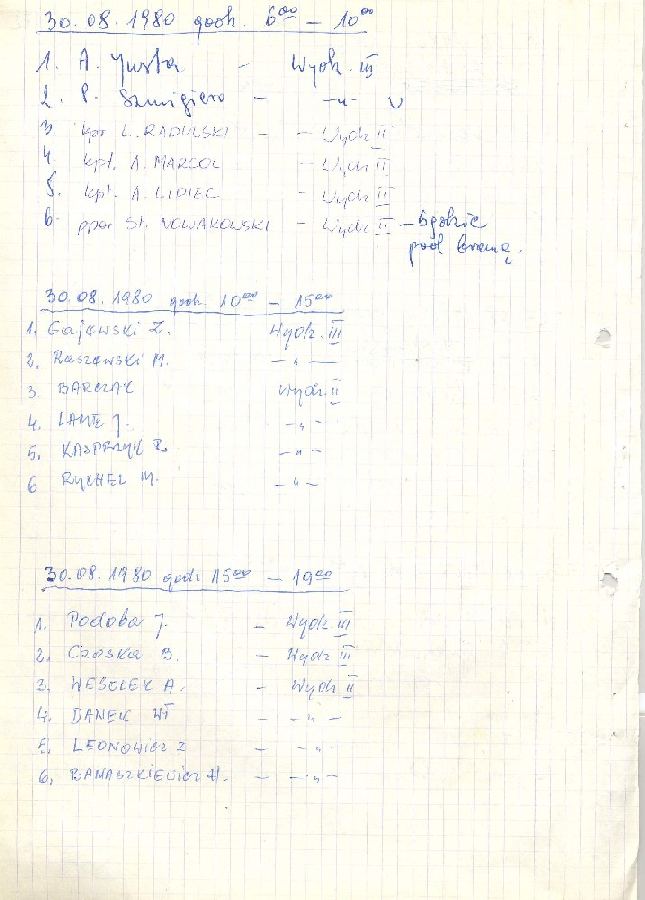 30.08.1980 godz. 6⁰⁰ – 10⁰⁰
1. A. Justa – Wydz. III
2. P. Szmigiero – –„– V
3. kpr L. RADULSKI – – Wydz II
4. kpt. A. MARCOL – Wydz II
5. kpt. A. LIDIEC – Wydz II
6. ppor St. NOWAKOWSKI – Wydz II –
pod bramą.
30.08.1980 godz. 10⁰⁰ – 15⁰⁰
1. Gajewski Z. Wydz. III
2. Raszewski M. –„–
3. BARCZAK Wydz. II
4. J. –„–
5. KASPRZYK R. –„–
6 RYCHEL M. –„–
30.08.1980 godz 15⁰⁰ – 19⁰⁰
1. Podoba J. – Wydz III
2. Czorska B. – Wydz III
3. WESELEK A. – Wydz II
4. DANEK WŁ – –„–
5. LEONOWICZ Z – –„–
6. BANASZKIEWICZ H. – –„–